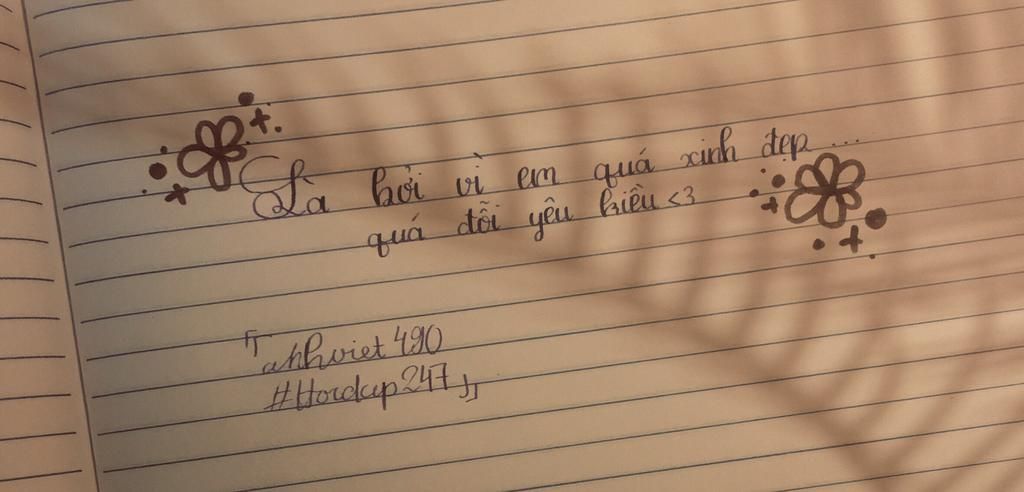 Là bởi vì em quá xinh đẹp...
quá đỗi yêu kiều <3
「ahhviet490
#Hoidap247」